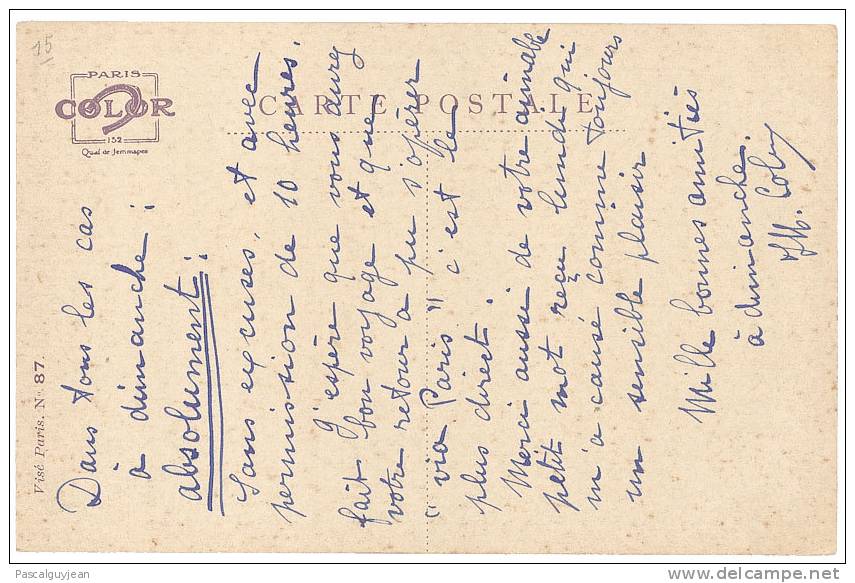 15
PARIS
COLOR
152
Quai de Jemmapes
CARTE POSTALE
Visé Paris. No 87.
Dans tous les cas
à dimanche :
absolument :
Sans excuses, et avec
permission de 10 heures.
J'espère que vous aurez
fait bon voyage et que
votre retour a pu s'opérer
"via Paris" c'est le
plus direct.
Merci aussi de votre aimable
petit mot reçu lundi qui
m'a causé comme toujours
un sensible plaisir
Mille bonnes amitiés
à dimanche.
Pascalguyjean
www.delcampe.net